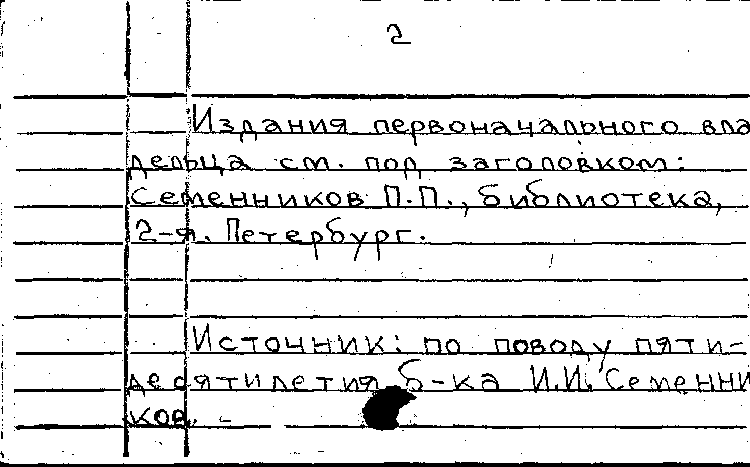 2
Издания первоначального вла
дельца см. под заголовком:
Семенников П.П., библиотека,
2-я. Петербург.
Источник: по поводу пяти-
десятилетия б-ка И.И. Семенни
ков. -